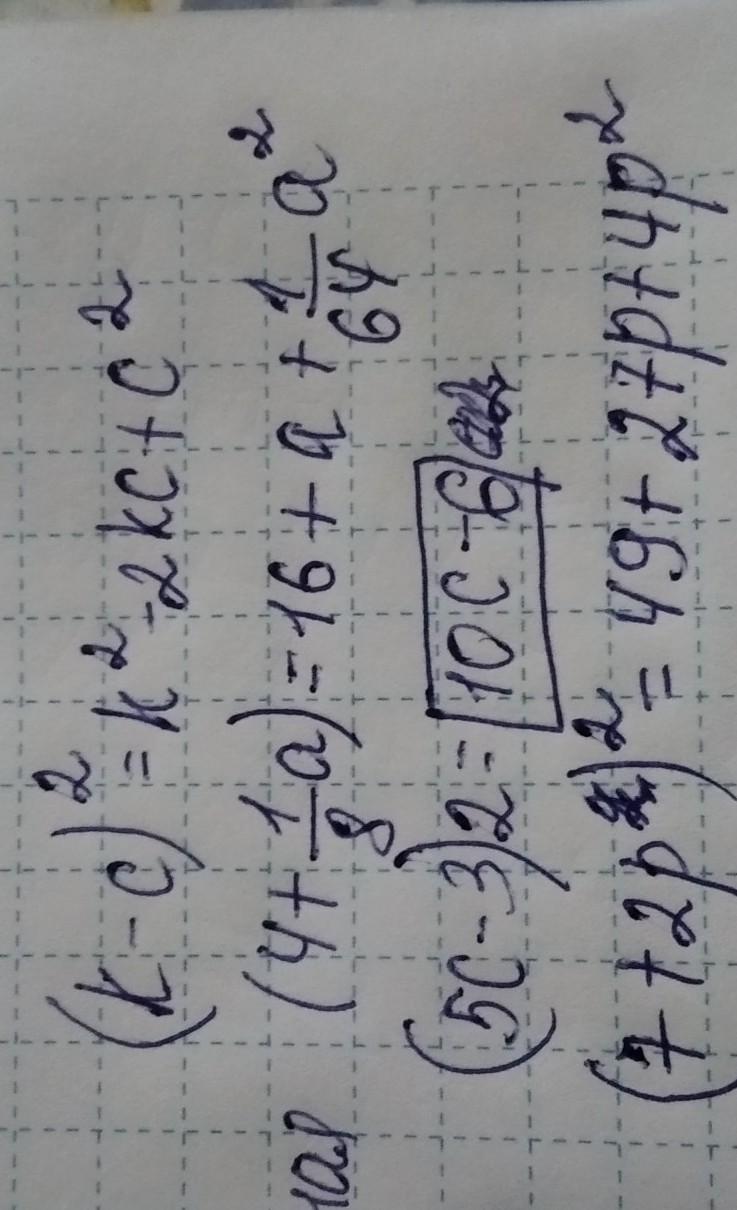 (k-c)² = k² - 2kc + c²
(4 + 1/8 a) = 16 + a + 1/64 a²
(5c-3)2 = 10c-6
(7 + 2p)² = 49 + 27p + 4p²